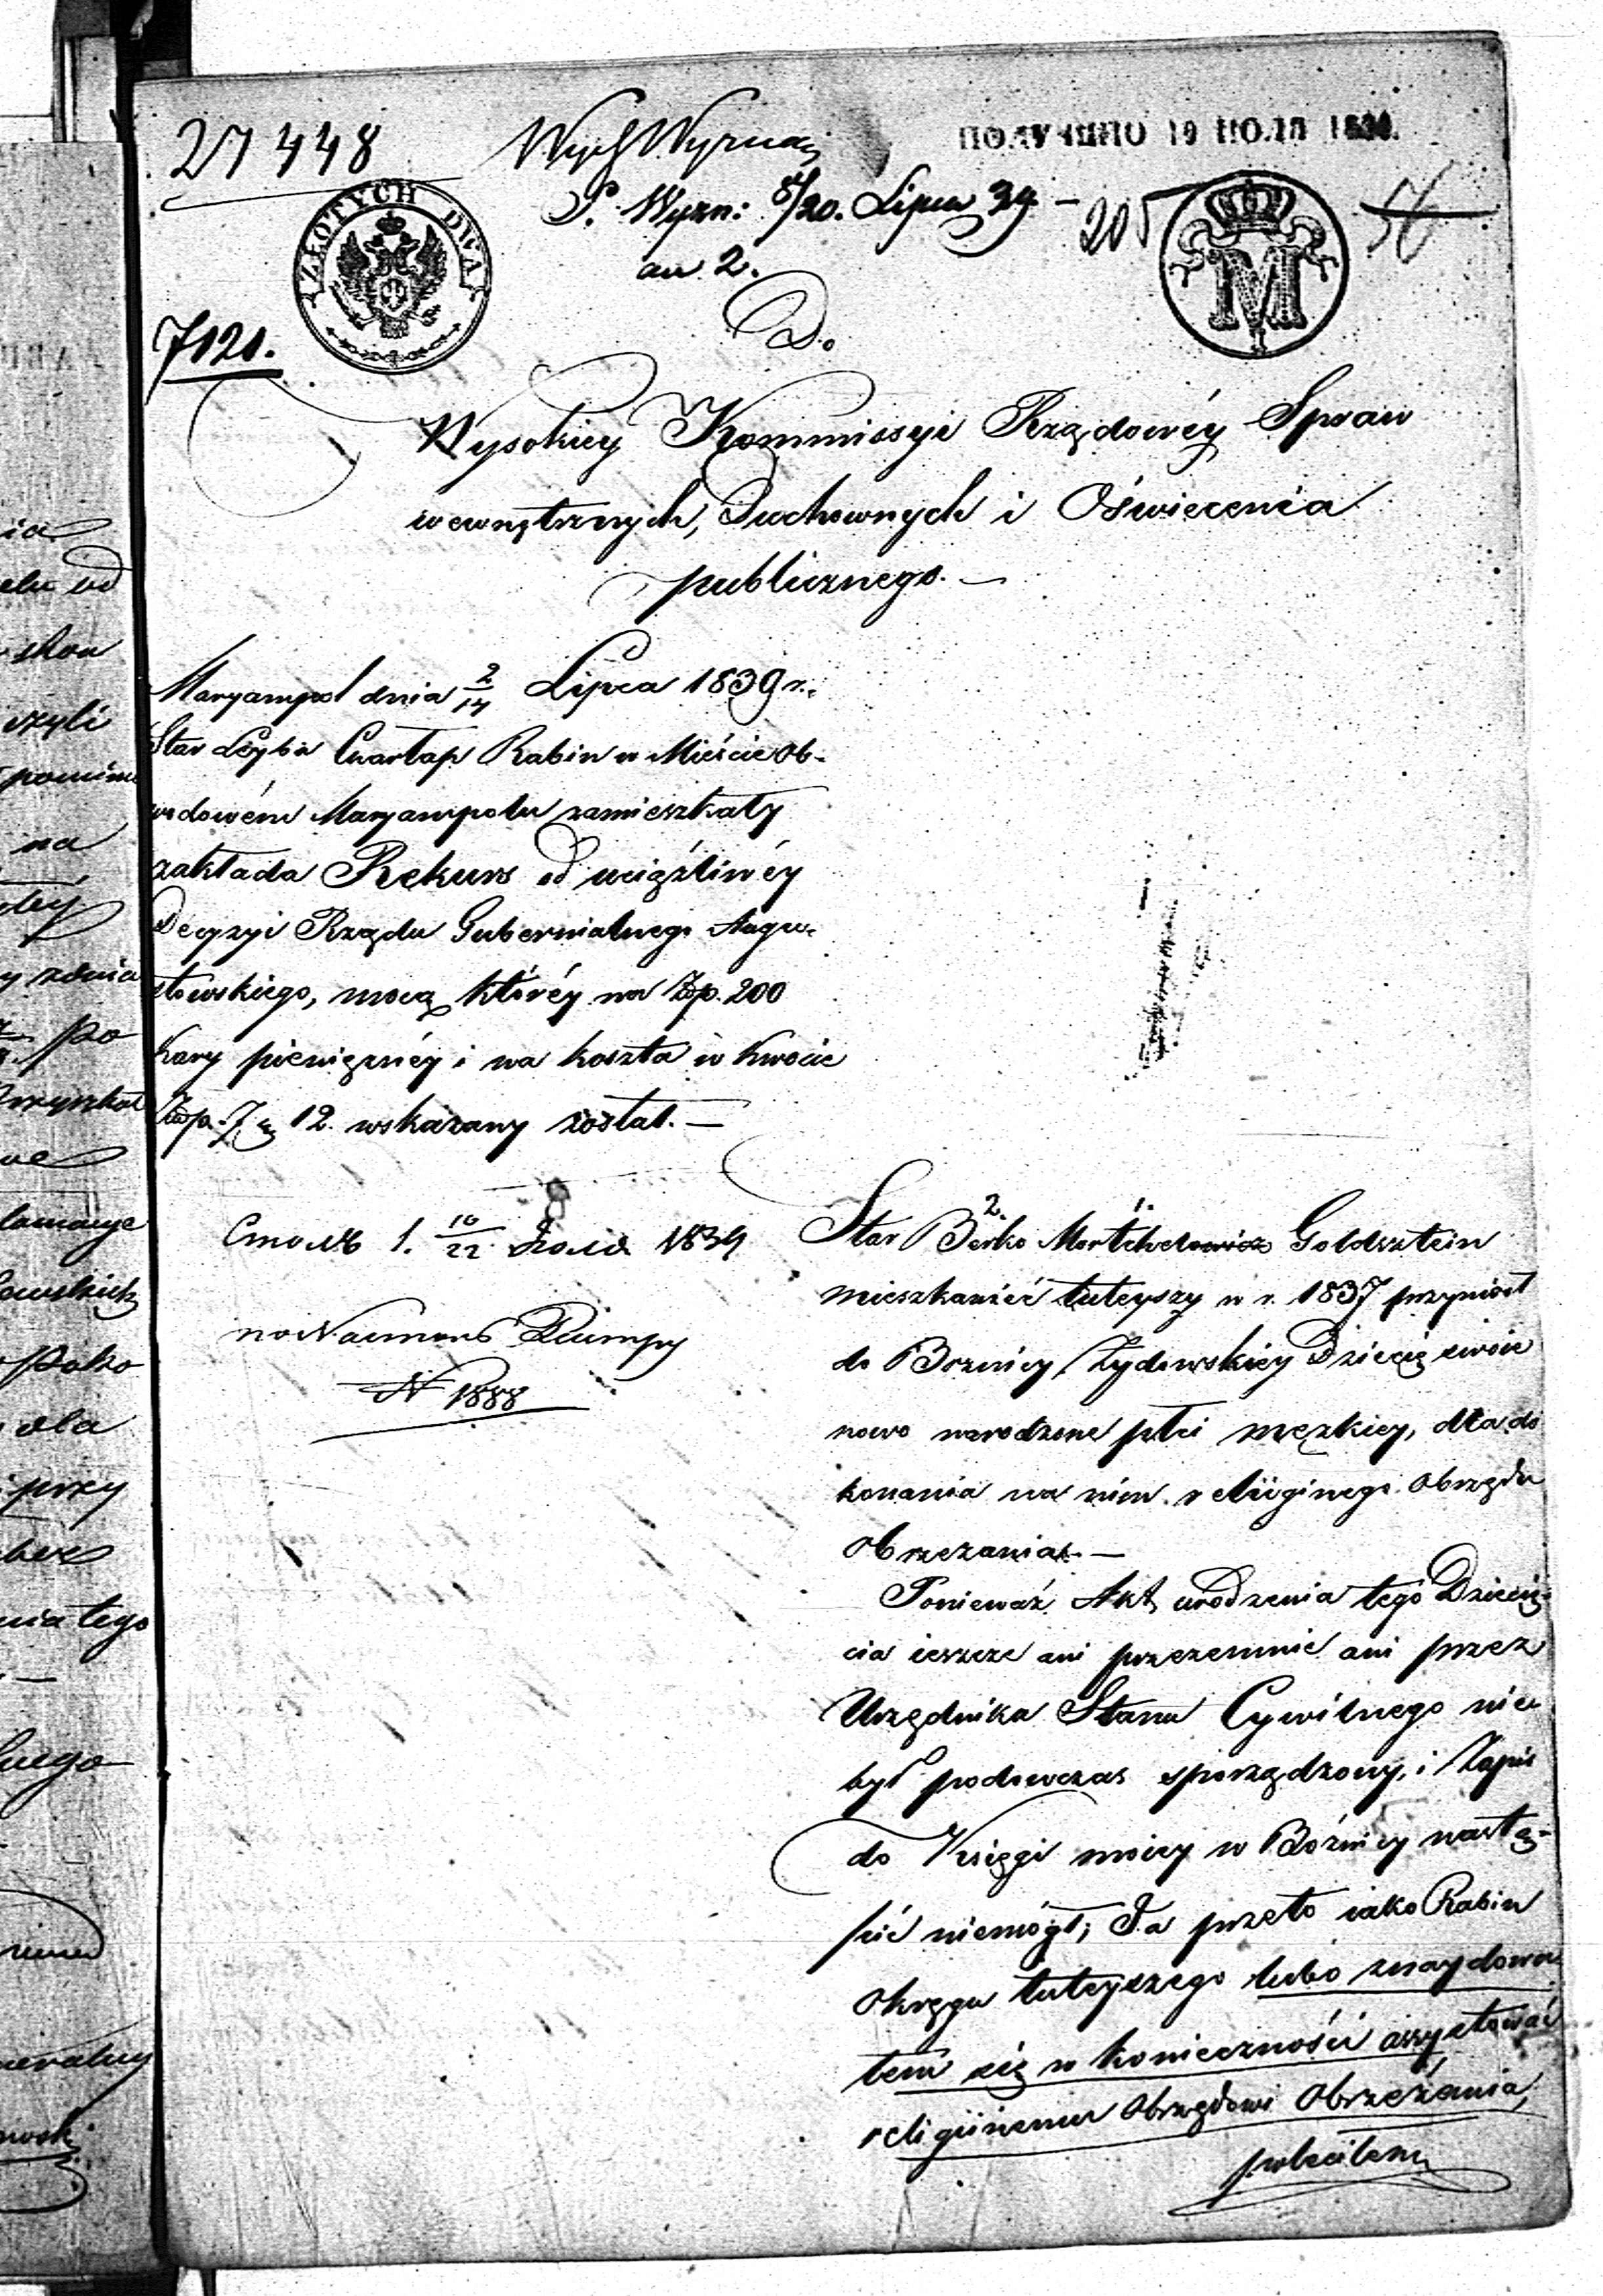 27448
Wydz Wyznań
ПОЛУЧЕНО 19 ІЮЛЯ 1839.
P. Wyzn: 8/20. Lipca 39 —
205
56
ZŁOTYCH DWA
M
an 2.
7121.
Do
Wysokiey Kommissyi Rządowéy Spraw
wewnętrznych, Duchownych i Oświecenia
publicznego. —
Maryampol dnia 2/14 Lipca 1839 r.
Star Leyba Charłap Rabin w Mieście Ob-
wodowém Maryampolu zamieszkały
zakłada Rekurs od uciążliwéy
Decyzyi Rządu Gubernialnego Augu-
stowskiego, mocą któréy na Złp. 200
kary pieniężnéy i na koszta w kwocie
Złp. 7 g 12. wskazany został. —
1. 10/22 1839
N 1888
2. 1.
Star Berko Mortchelowicz Goldsztein
mieszkaniéc tuteyszy w r. 1837 przyniosł
do Bożnicy Żydowskiey Dziecię swoie
nowo narodzone płci męzkiey, dla do
konania na nim religiinego Obrzędu
Obrzezania. —
Ponieważ Akt urodzenia tego Dziecię-
cia ieszcze ani przezemnie ani przez
Urzędnika Stanu Cywilnego nie
był podowczas sporządzony, i Zapis
do Księgi moiey w Bóżnicy nastą-
pić niemógł; Ja przeto iako Rabin
Okręgu tuteyszego lubo znaydowa
łem się w konieczności assystować
religiinemu Obrzędowi Obrzezania,
poleciłem